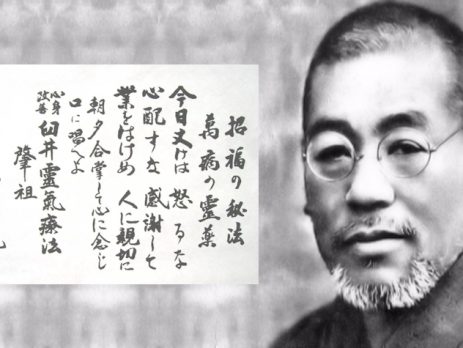 招福の秘法
萬病の靈薬
今日丈けは 怒るな
心配すな 感謝して
業をはけめ 人に親切に
朝夕合掌して心に念じ
口に唱へよ
心身
改善 臼井靈氣療法
肇祖